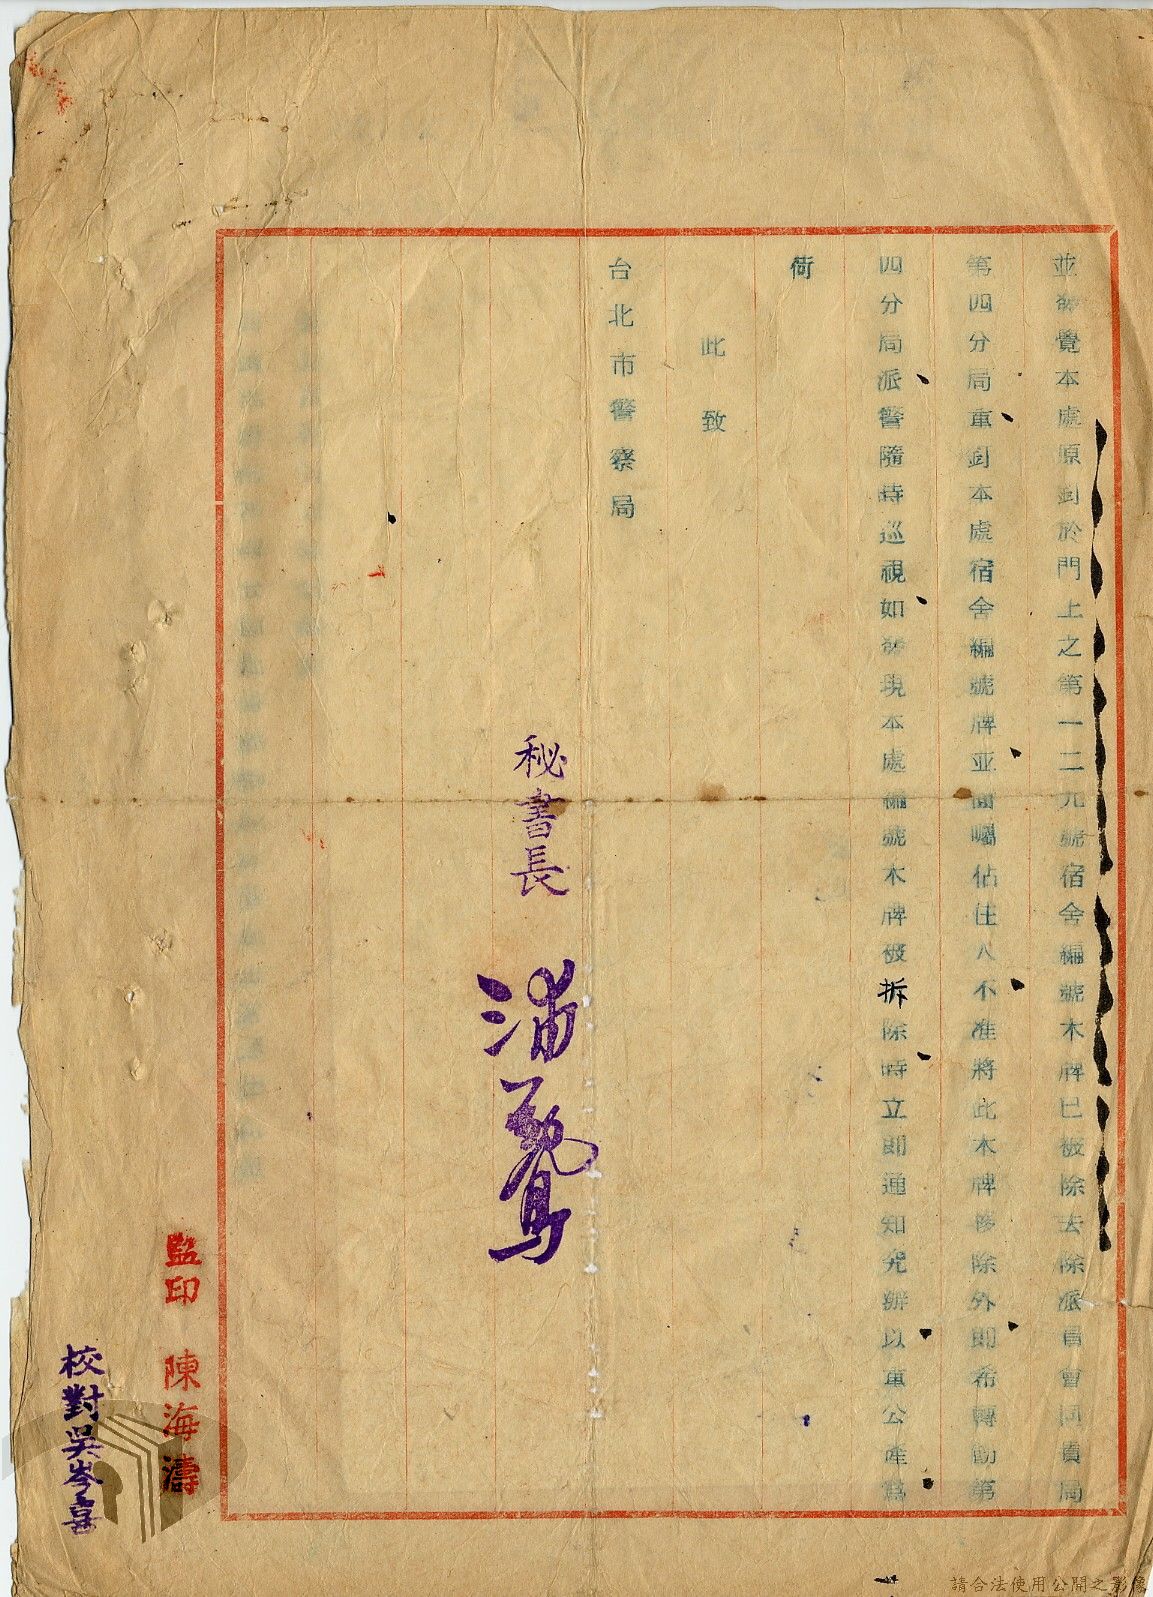 並發覺本處原釘於門上之第一二九號宿舍編號木牌已被除去除派員會同貴局
第四分局重釘本處宿舍編號牌並面囑佔住人不准將此木牌移除外即希轉飭第
四分局派警隨時巡視如發現本處編號木牌被拆除時立即通知究辦以重公產為
荷
此致
台北市警察局
秘書長
浦薛鳳
監印 陳海濤
校對吳岑喜
請合法使用公開之影像